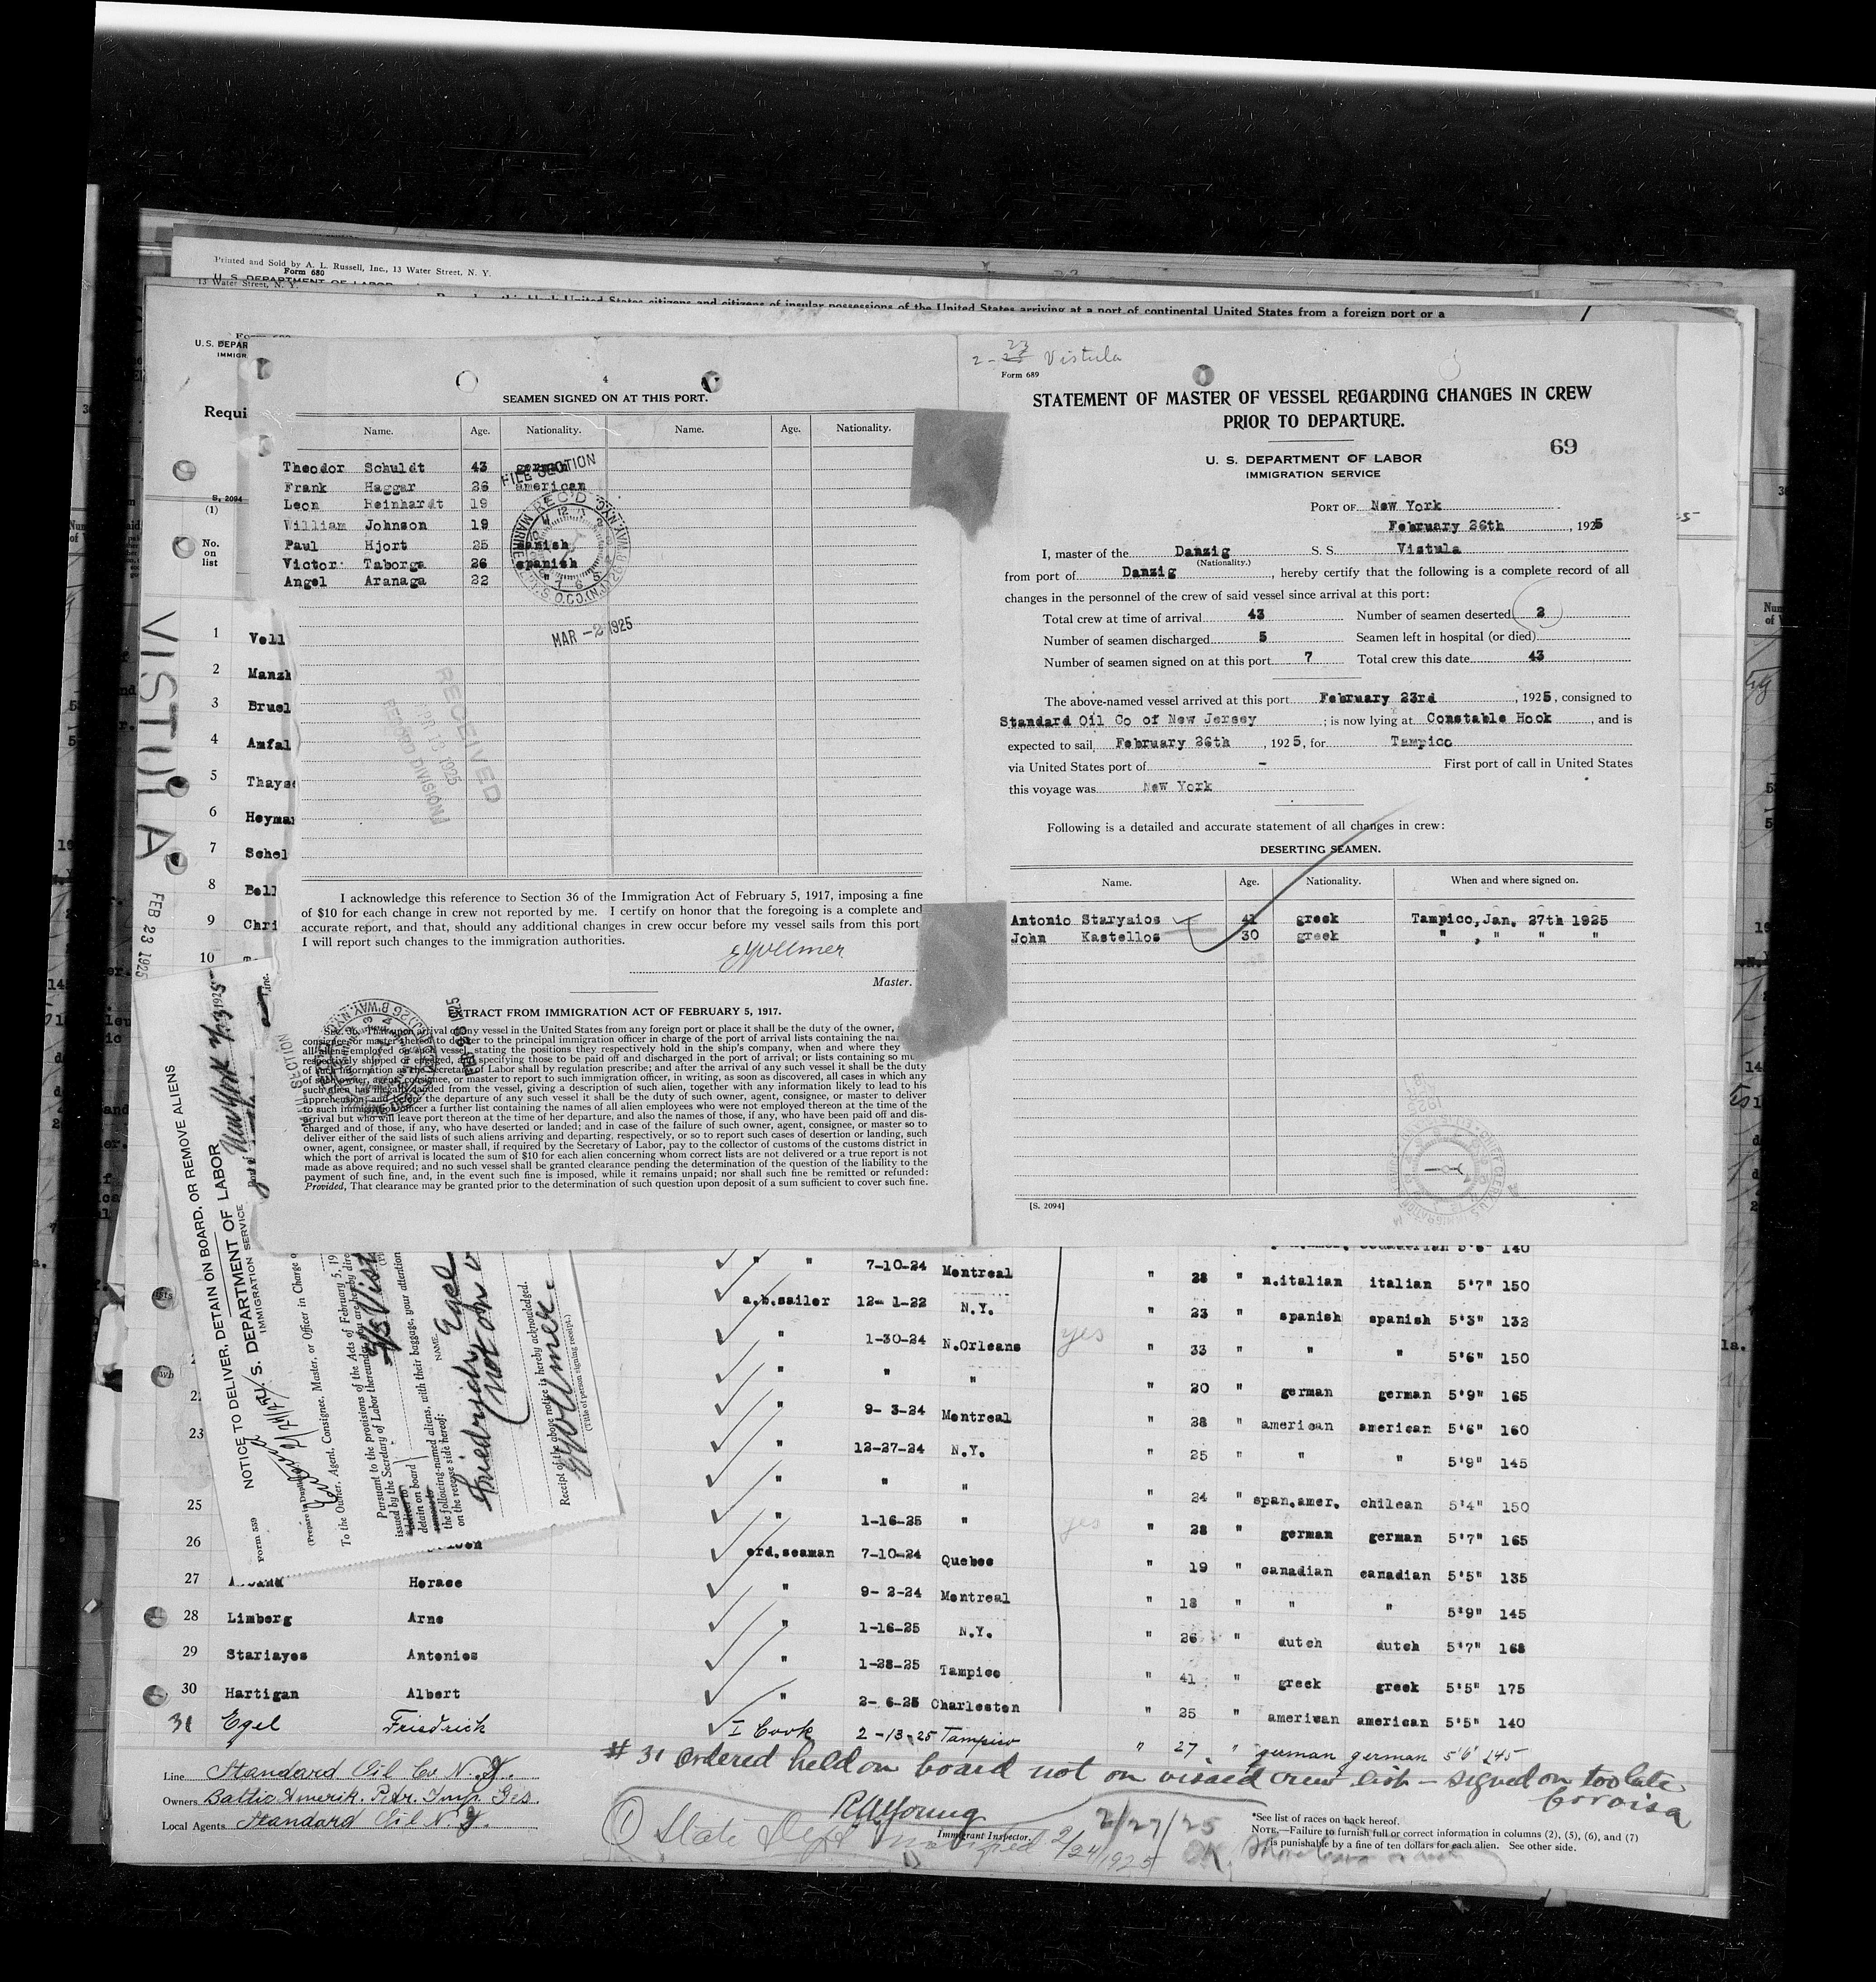 Printed and Sold by A. L. Russell, Inc., 13 Water Street, N. Y.
Form 680
U. S. DEPARTMENT OF LABOR
13 Water Street, N. Y.
United States citizens and citizens of insular possessions of the United States arriving at a port of continental United States from a foreign port or a
U. S. DEPAR
IMMIGR
Requi
S. 2094
(1)
No.
on
list
VISTULA
FEB 23 1925
1 Vell
2 Manzh
3 Bruel
4 Amfal
5 Thays
6 Heyma
7 Schel
8 Bell
9 Chri
10
4
SEAMEN SIGNED ON AT THIS PORT.
Name. Age. Nationality. Name. Age. Nationality.
Theodor Schuldt 43 german
Frank Haggar 26 american
Leon Reinhardt 19
William Johnson 19
Paul Hjort 25 danish
Victor Taborga 26 spanish
Angel Aranaga 22
FILE SECTION
REC'D
MAR -2 1925
RECEIVED
13 1925
RECORD DIVISION
I acknowledge this reference to Section 36 of the Immigration Act of February 5, 1917, imposing a fine
of $10 for each change in crew not reported by me. I certify on honor that the foregoing is a complete and
accurate report, and that, should any additional changes in crew occur before my vessel sails from this port
I will report such changes to the immigration authorities.
EVollmer
Master.
EXTRACT FROM IMMIGRATION ACT OF FEBRUARY 5, 1917.
Sec. 36. That upon arrival of any vessel in the United States from any foreign port or place it shall be the duty of the owner,
consignee, or master thereof to deliver to the principal immigration officer in charge of the port of arrival lists containing the na
all aliens employed on such vessel, stating the positions they respectively hold in the ship's company, when and where they
respectively shipped or engaged, and specifying those to be paid off and discharged in the port of arrival; or lists containing so mu
of such information as the Secretary of Labor shall by regulation prescribe; and after the arrival of any such vessel it shall be the duty
of such owner, agent, consignee, or master to report to such immigration officer, in writing, as soon as discovered, all cases in which any
such alien has illegally landed from the vessel, giving a description of such alien, together with any information likely to lead to his
apprehension; and before the departure of any such vessel it shall be the duty of such owner, agent, consignee, or master to deliver
to such immigration officer a further list containing the names of all alien employees who were not employed thereon at the time of the
arrival but who will leave port thereon at the time of her departure, and also the names of those, if any, who have been paid off and dis-
charged and of those, if any, who have deserted or landed; and in case of the failure of such owner, agent, consignee, or master so to
deliver either of the said lists of such aliens arriving and departing, respectively, or so to report such cases of desertion or landing, such
owner, agent, consignee, or master shall, if required by the Secretary of Labor, pay to the collector of customs of the customs district in
which the port of arrival is located the sum of $10 for each alien concerning whom correct lists are not delivered or a true report is not
made as above required; and no such vessel shall be granted clearance pending the determination of the question of the liability to the
payment of such fine, and, in the event such fine is imposed, while it remains unpaid; nor shall such fine be remitted or refunded:
Provided, That clearance may be granted prior to the determination of such question upon deposit of a sum sufficient to cover such fine.
2-23 Vistula
Form 689
STATEMENT OF MASTER OF VESSEL REGARDING CHANGES IN CREW
PRIOR TO DEPARTURE.
69
U. S. DEPARTMENT OF LABOR
IMMIGRATION SERVICE
PORT OF New York
February 26th, 1925
I, master of the Danzig S. S. Vistula
(Nationality.)
from port of Danzig, hereby certify that the following is a complete record of all
changes in the personnel of the crew of said vessel since arrival at this port:
Total crew at time of arrival 43 Number of seamen deserted 2
Number of seamen discharged 5 Seamen left in hospital (or died)
Number of seamen signed on at this port 7 Total crew this date 43
The above-named vessel arrived at this port February 23rd, 1925, consigned to
Standard Oil Co of New Jersey; is now lying at Constable Hook, and is
expected to sail February 26th, 1925, for Tampico
via United States port of - First port of call in United States
this voyage was New York
Following is a detailed and accurate statement of all changes in crew:
DESERTING SEAMEN.
Name. Age. Nationality. When and where signed on.
Antonio Starysios 41 greek Tampico, Jan. 27th 1925
John Kastellos 30 greek " , " " "
[S. 2094]
Form 559
NOTICE TO DELIVER, DETAIN ON BOARD, OR REMOVE ALIENS
U. S. DEPARTMENT OF LABOR
IMMIGRATION SERVICE
New York 2/23/1925
To the Owner, Agent, Consignee, Master, or Officer in Charge
Pursuant to the provisions of the Acts of February 5, 19
issued by the Secretary of Labor thereunder, you are hereby dire
S/S Vist
detain on board
the following-named aliens, with their baggage, your attention
on the reverse side hereof:
NAME.
Friedrich Egel
(not on v
Receipt of the above notice is hereby acknowledged.
EVollmer
(Title of person signing receipt.)
" " 7-10-24 Montreal " 28 " n.italian italian 5'7" 150
a.b.sailer 12- 1-22 N.Y. " 23 spanish spanish 5'3" 132
" 1-30-24 N.Orleans yes " 33 " " " 5'6" 150
" " " " 20 " german german 5'9" 165
" 9- 3-24 Montreal " 28 " american american 5'6" 160
23 " 12-27-24 N.Y. " 25 " " " 5'9" 145
" " " " 24 " span.amer. chilean 5'4" 150
25 " 1-16-25 " yes " 28 " german german 5'7" 165
26 ord.seaman 7-10-24 Quebec " 19 " canadian canadian 5'5" 135
27 Horace " 9- 2-24 Montreal " 18 " " " 5'9" 145
28 Limberg Arne " 1-16-25 N.Y. " 26 " dutch dutch 5'7" 168
29 Stariayes Antonios " 1-28-25 Tampico " 41 " greek greek 5'5" 175
30 Hartigan Albert " 2- 6-25 Charleston " 25 " ameriwan american 5'5" 140
31 Egel Friedrich I Cook 2-13-25 Tampico " 27 " german german 5'6" 145
#31 Ordered held on board not on visaed crew list - signed on too late
Line Standard Oil Co. N.J.
Owners Baltic Amerik. Petr. Imp. Ges.
Local Agents Standard Oil N.J.
RAYoung
Immigrant Inspector.
2/27/25
State Dept notified 2/24/1925
OK
*See list of races on back hereof.
NOTE.—Failure to furnish full or correct information in columns (2), (5), (6), and (7)
is punishable by a fine of ten dollars for each alien. See other side.